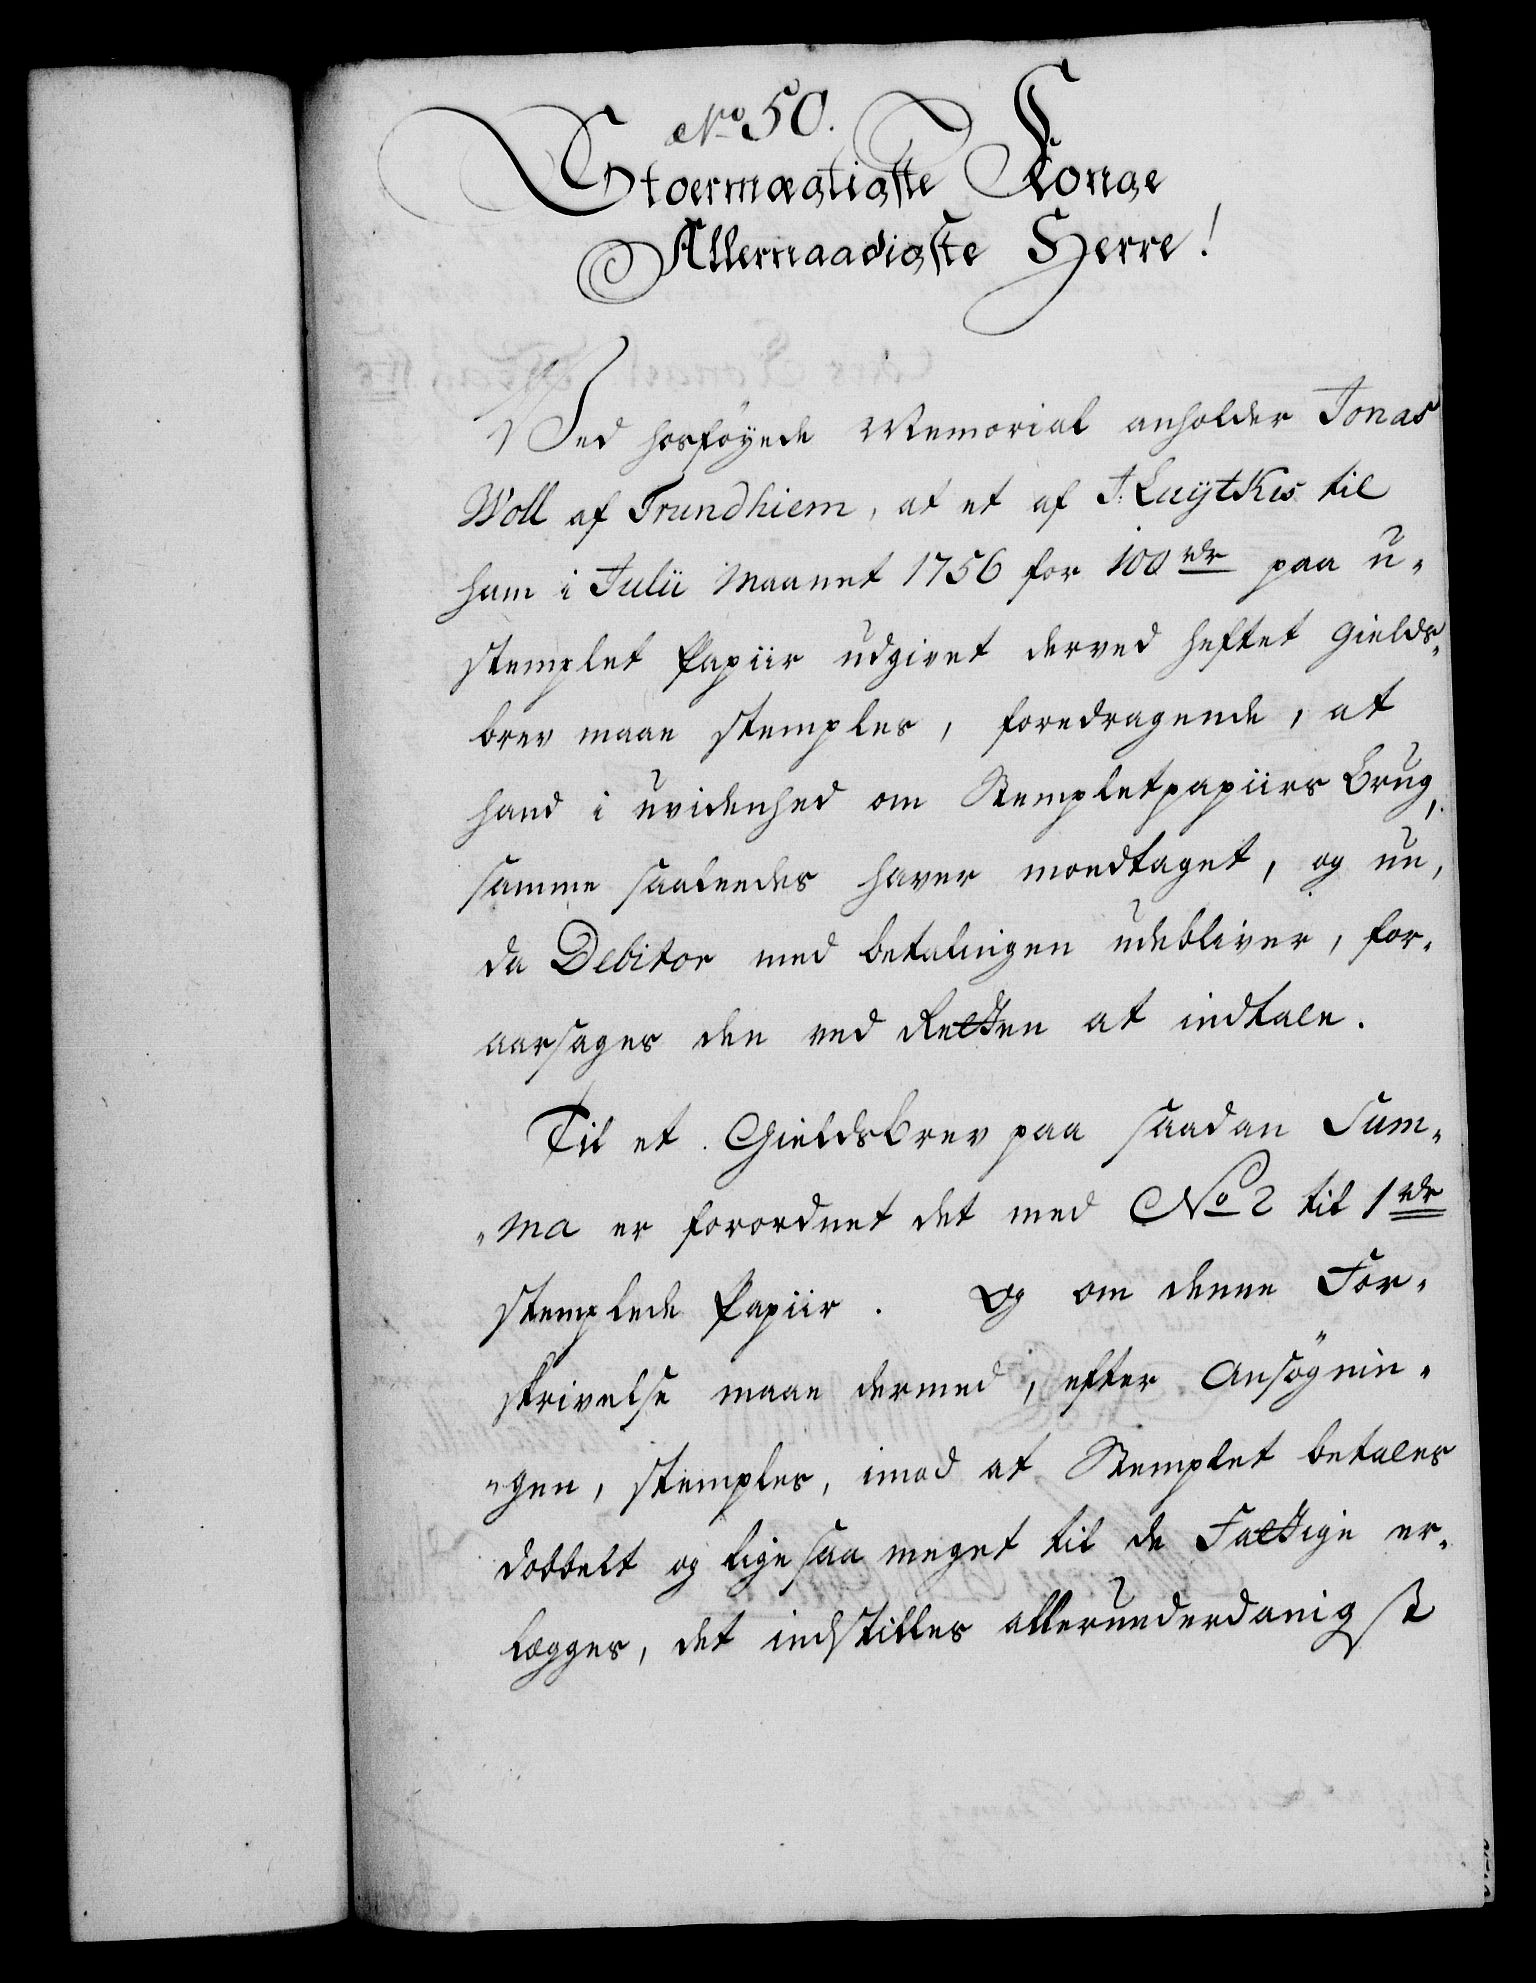 No 50.
Stoermægtigste Konge
Allernaadigste Herre!
Ved hosføyede Memorial anholder Jonas
Woll af Trundhiem, at et af J: Luytkis til
ham i Julii Maanet 1756 for 100 rdr paa u-
stemplet Papiir udgivet derved heftet Gields-
brev maae stemples, foredragende, at
hand i uvidenhed om Stempletpapiirs Brug,
samme saaledes haver modtaget, og nu,
da Debitor med betalingen udebliver, for-
aarsages den ved Retten at indtale.
Til et Gieldsbrev paa saadan Sum-
"ma er forordnet det med No 2 til 1 rdr
stemplede Papiir. Og om denne For-
skrivelse maae dermed, efter Ansøgnin-
"gen, stemples, imod at Stemplet betales
dobbelt og ligesaa meget til de Fattige er-
lægges, det indstilles allerunderdanigst